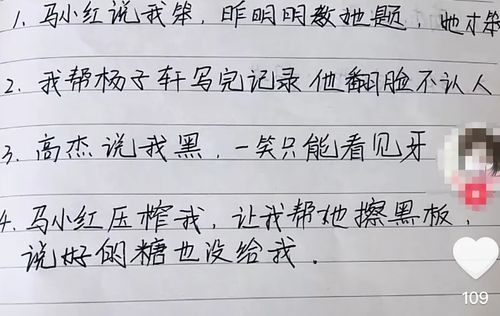 1. 马小红说我笨，昨明明教她题，她才笨
2. 我帮杨子轩写完记录他翻脸不认人
3. 高杰说我黑，一笑只能看见牙
4. 马小红压榨我，让我帮她擦黑板，
说好的糖也没给我.
109